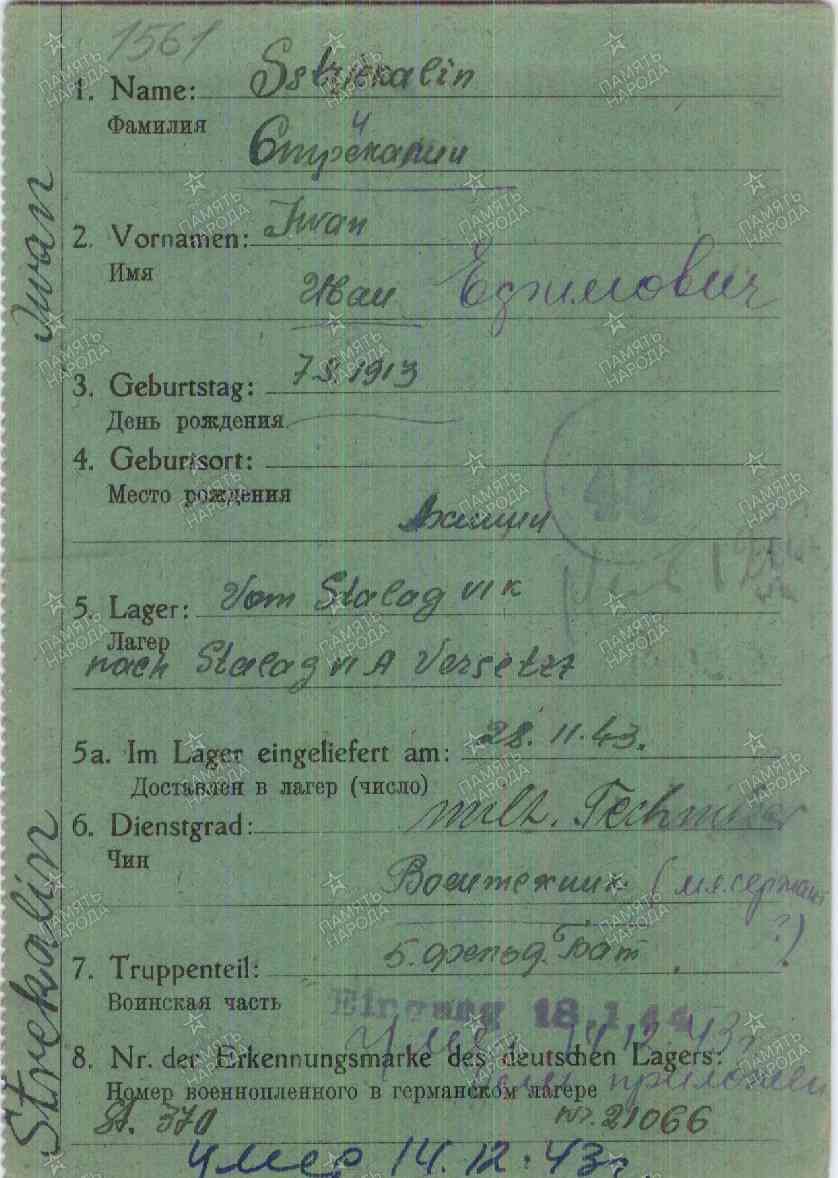 1561
1. Name: Sstrjekalin
Фамилия
Стрекалин
2. Vornamen: Iwan
Имя
Иван Ефимович
3. Geburtstag: 7.8.1913
День рождения
4. Geburtsort:
Место рождения
5. Lager: Vom Stalag VI K
Лагер
nach Stalag VI A Versetzt
5a. Im Lager eingeliefert am: 28.11.43.
Доставлен в лагер (число)
6. Dienstgrad: milt. Techniker
Чин
Воентехник (мл. сержант
?)
7. Truppenteil: 5.
Воинская часть
Eingang 18.1.44
Умер 14.12.43г
8. Nr. der Erkennungsmarke des deutschen Lagers:
Номер военнопленного в германском лагере
St. 370 Nr. 21066
умер 14.12.43г.
Strekalin Iwan
ПАМЯТЬ
НАРОДА